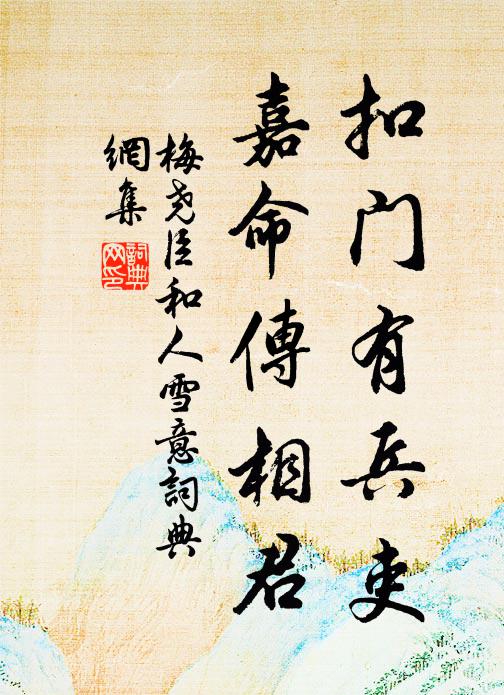 扣门有兵吏
嘉命傳相君
梅尧臣和人雪意詞典
網集
詞典网印